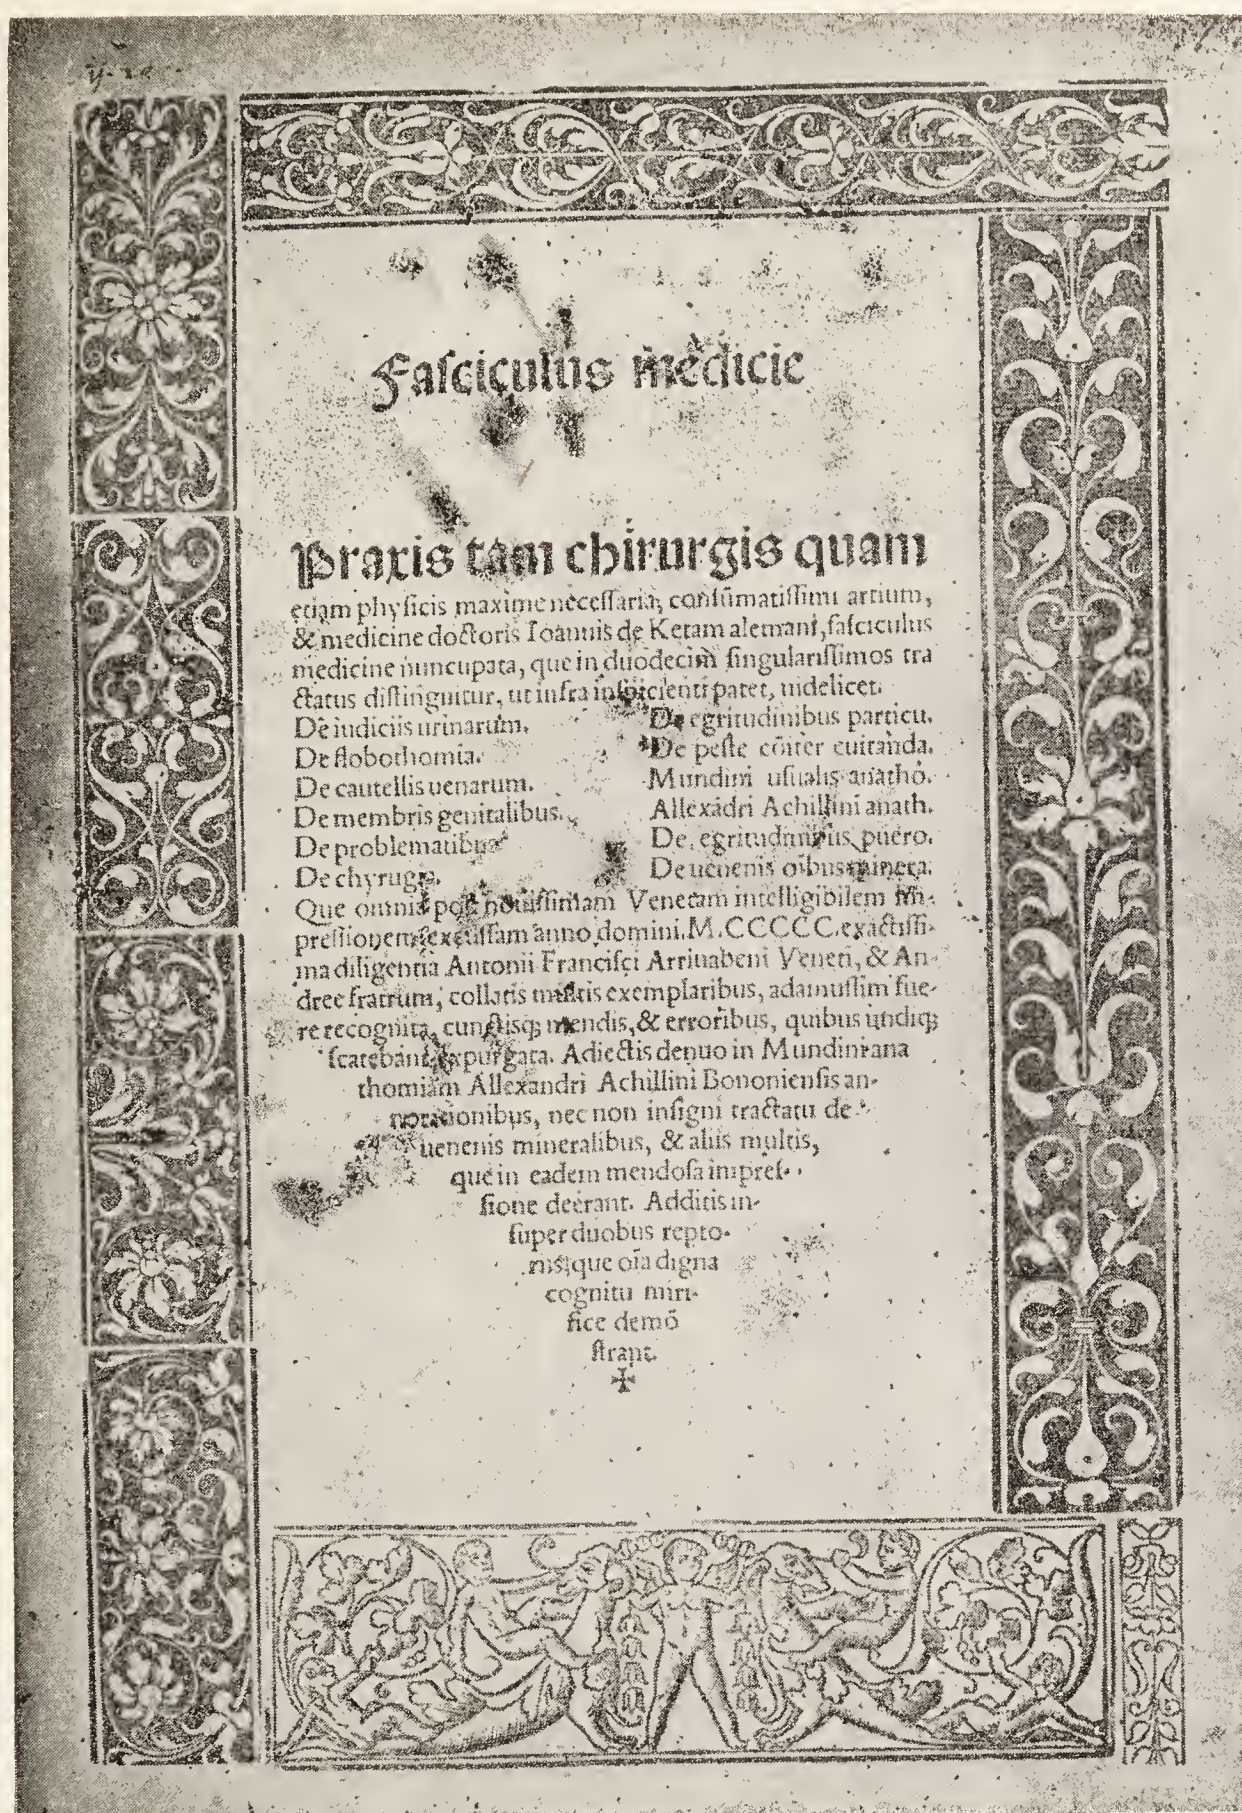 Faſciculus mēdicie
Praxis tam chirurgis quam
etiam phyſicis maxime neceſſaria, conſūmatiſſimi artium,
& medicine doctoris Ioānnis de Ketam alemani, faſciculus
medicine nuncupata, que in duodecim ſingulariſſimos tra
ctatus diſtinguitur, ut infra inſpicienti patet, uidelicet.
De iudiciis urinarum.
De flobothomia.
De cautellis uenarum.
De membris genitalibus.
De problematibus
De chyrugia.
De egritudinibus particu.
De peſte cōiter euitanda.
Mundini uſualis anatho.
Allexādri Achillini anath.
De egritudinibus puero.
De uenenis oībus minera.
Que omnia poſt nouiſſimam Venetam intelligibilem im-
preſſionem excuſſam anno domini. M.CCCCC. exactiſſi-
ma diligentia Antonii Franciſci Arriuabeni Veneti, & An-
dree fratrum, collatis multis exemplaribus, adamuſſim fue-
re recognita, cunctisq; mendis, & erroribus, quibus undiq;
ſcatebant expurgata. Adiectis denuo in Mundini ana
thomiam Allexandri Achillini Bononienſis an-
notationibus, nec non inſigni tractatu de
uenenis mineralibus, & aliis multis,
que in eadem mendoſa impreſ-
ſione deerant. Additis in-
ſuper duobus repto-
riis, que oīa digna
cognitu miri-
fice demō
ſtrant.
✠